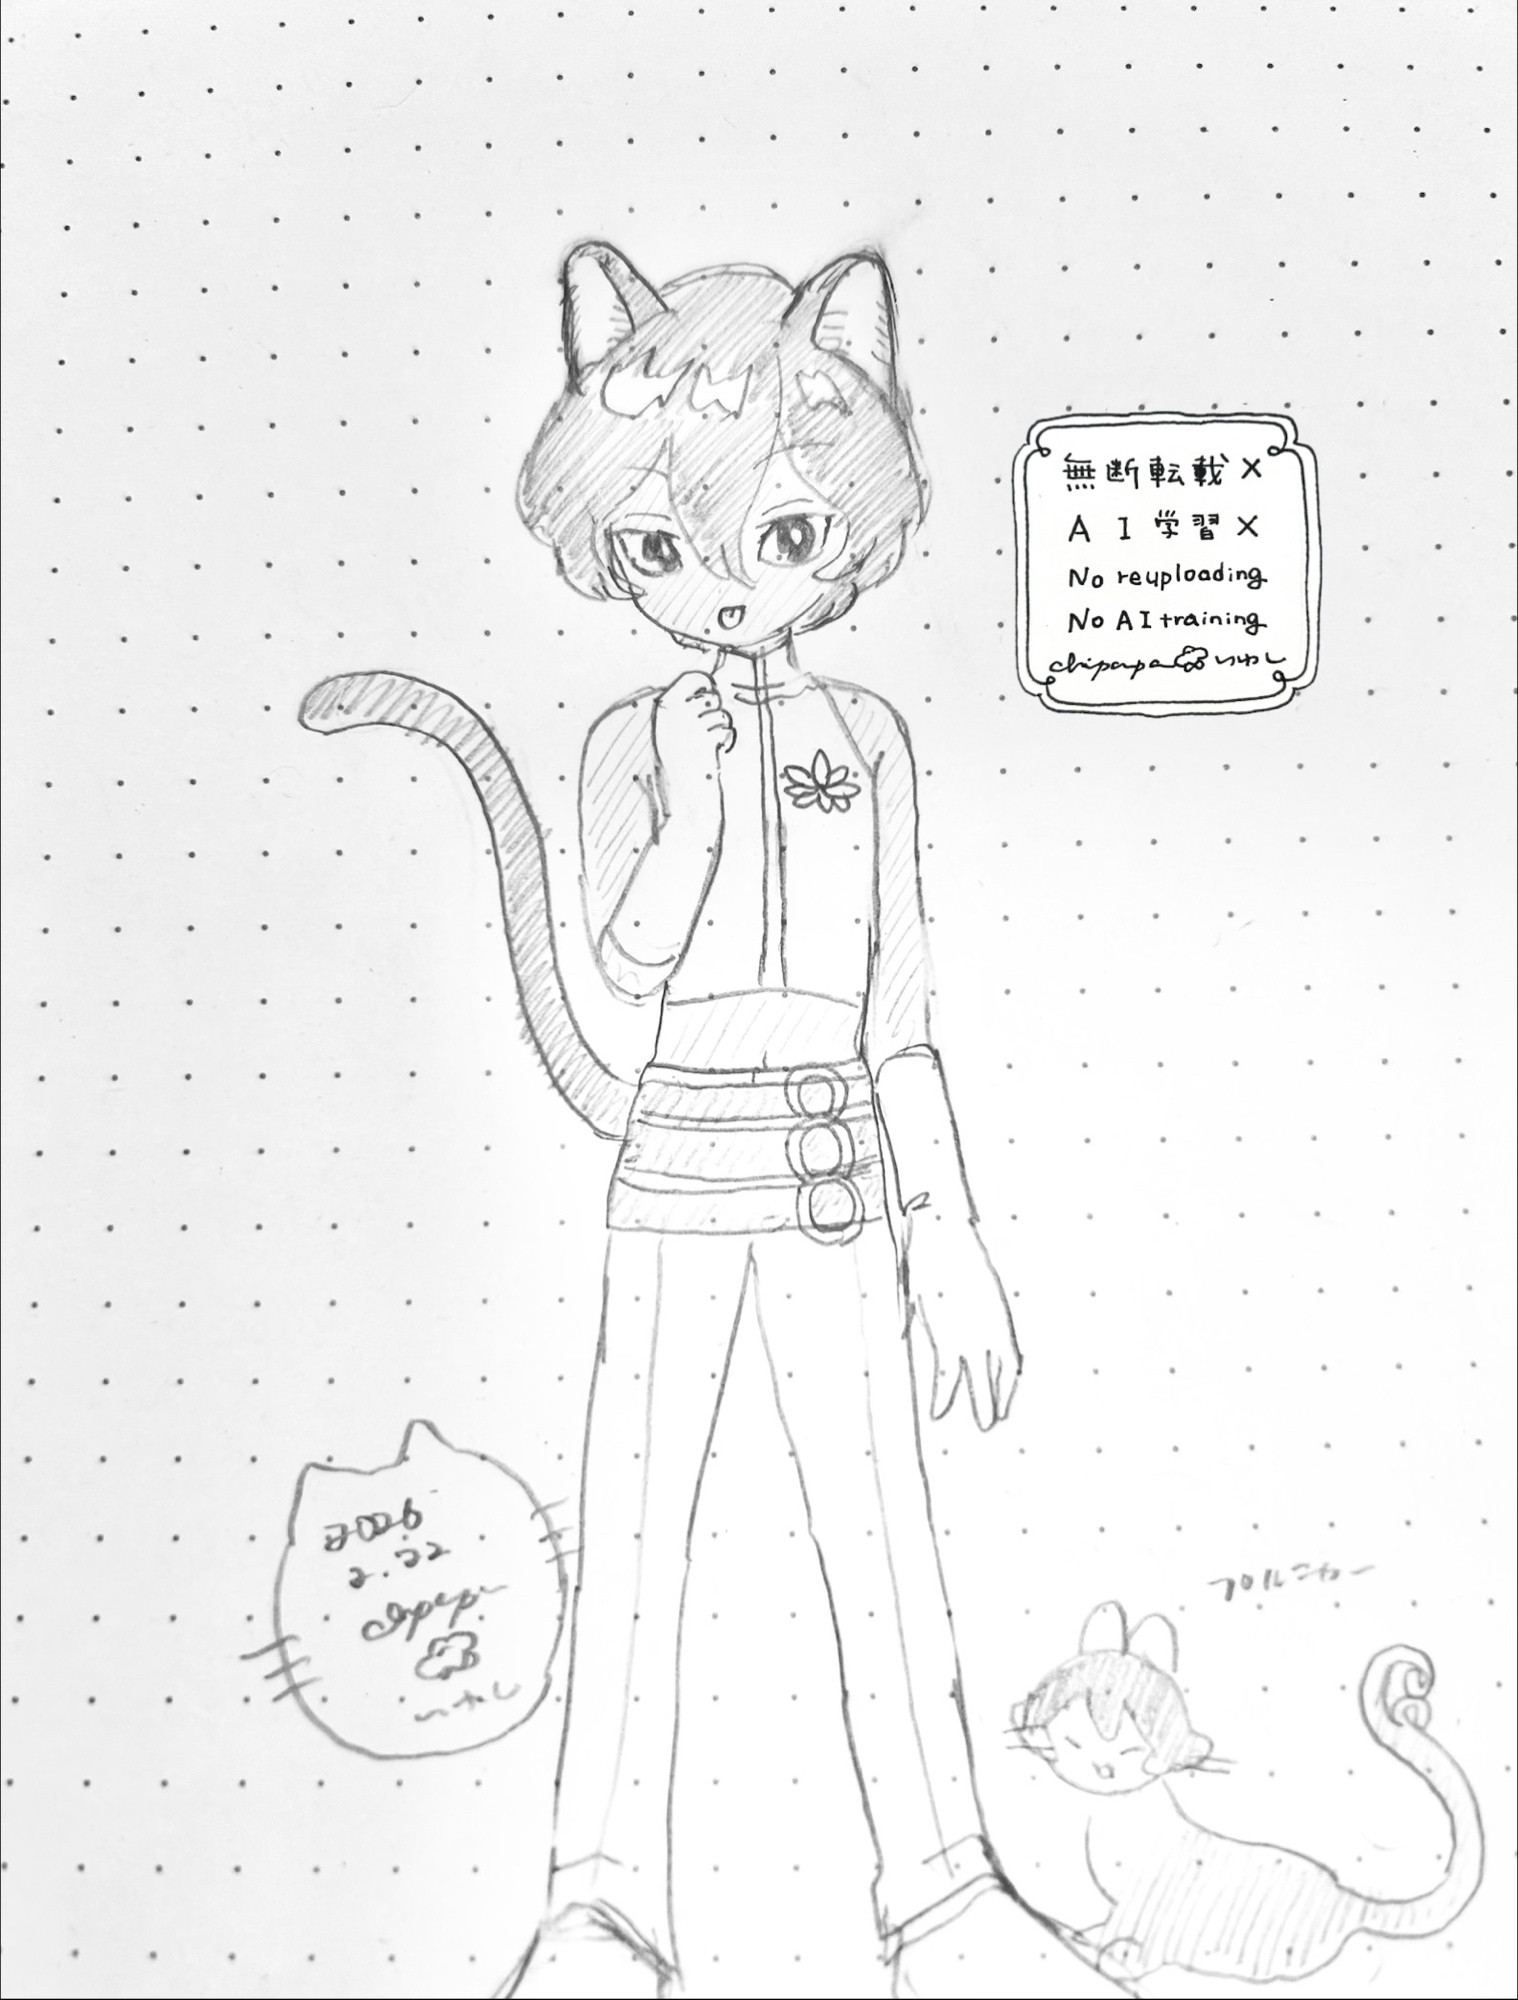 無断転載×
AI学習×
No reuploading
No AI training
chipapa いわし
2026
2.22
chipapa
いわし
プロルニャー